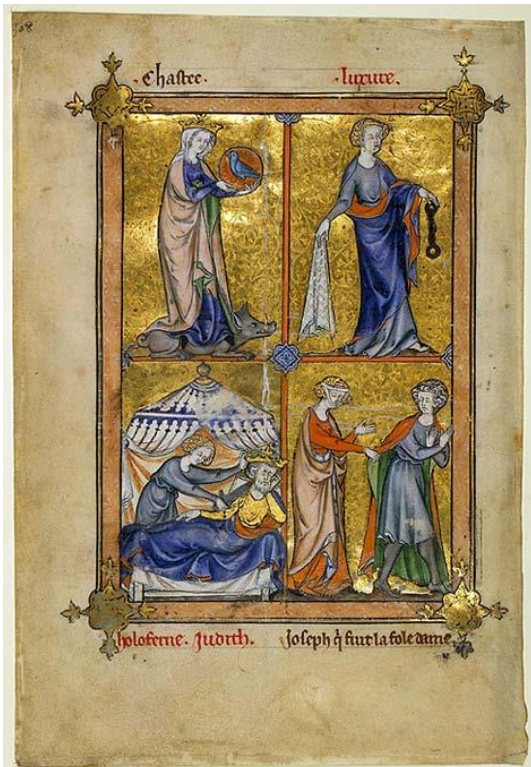 ·Chastee· ·luxure·
holoferne· Judith· Joseph q̄ fiut la fole dame